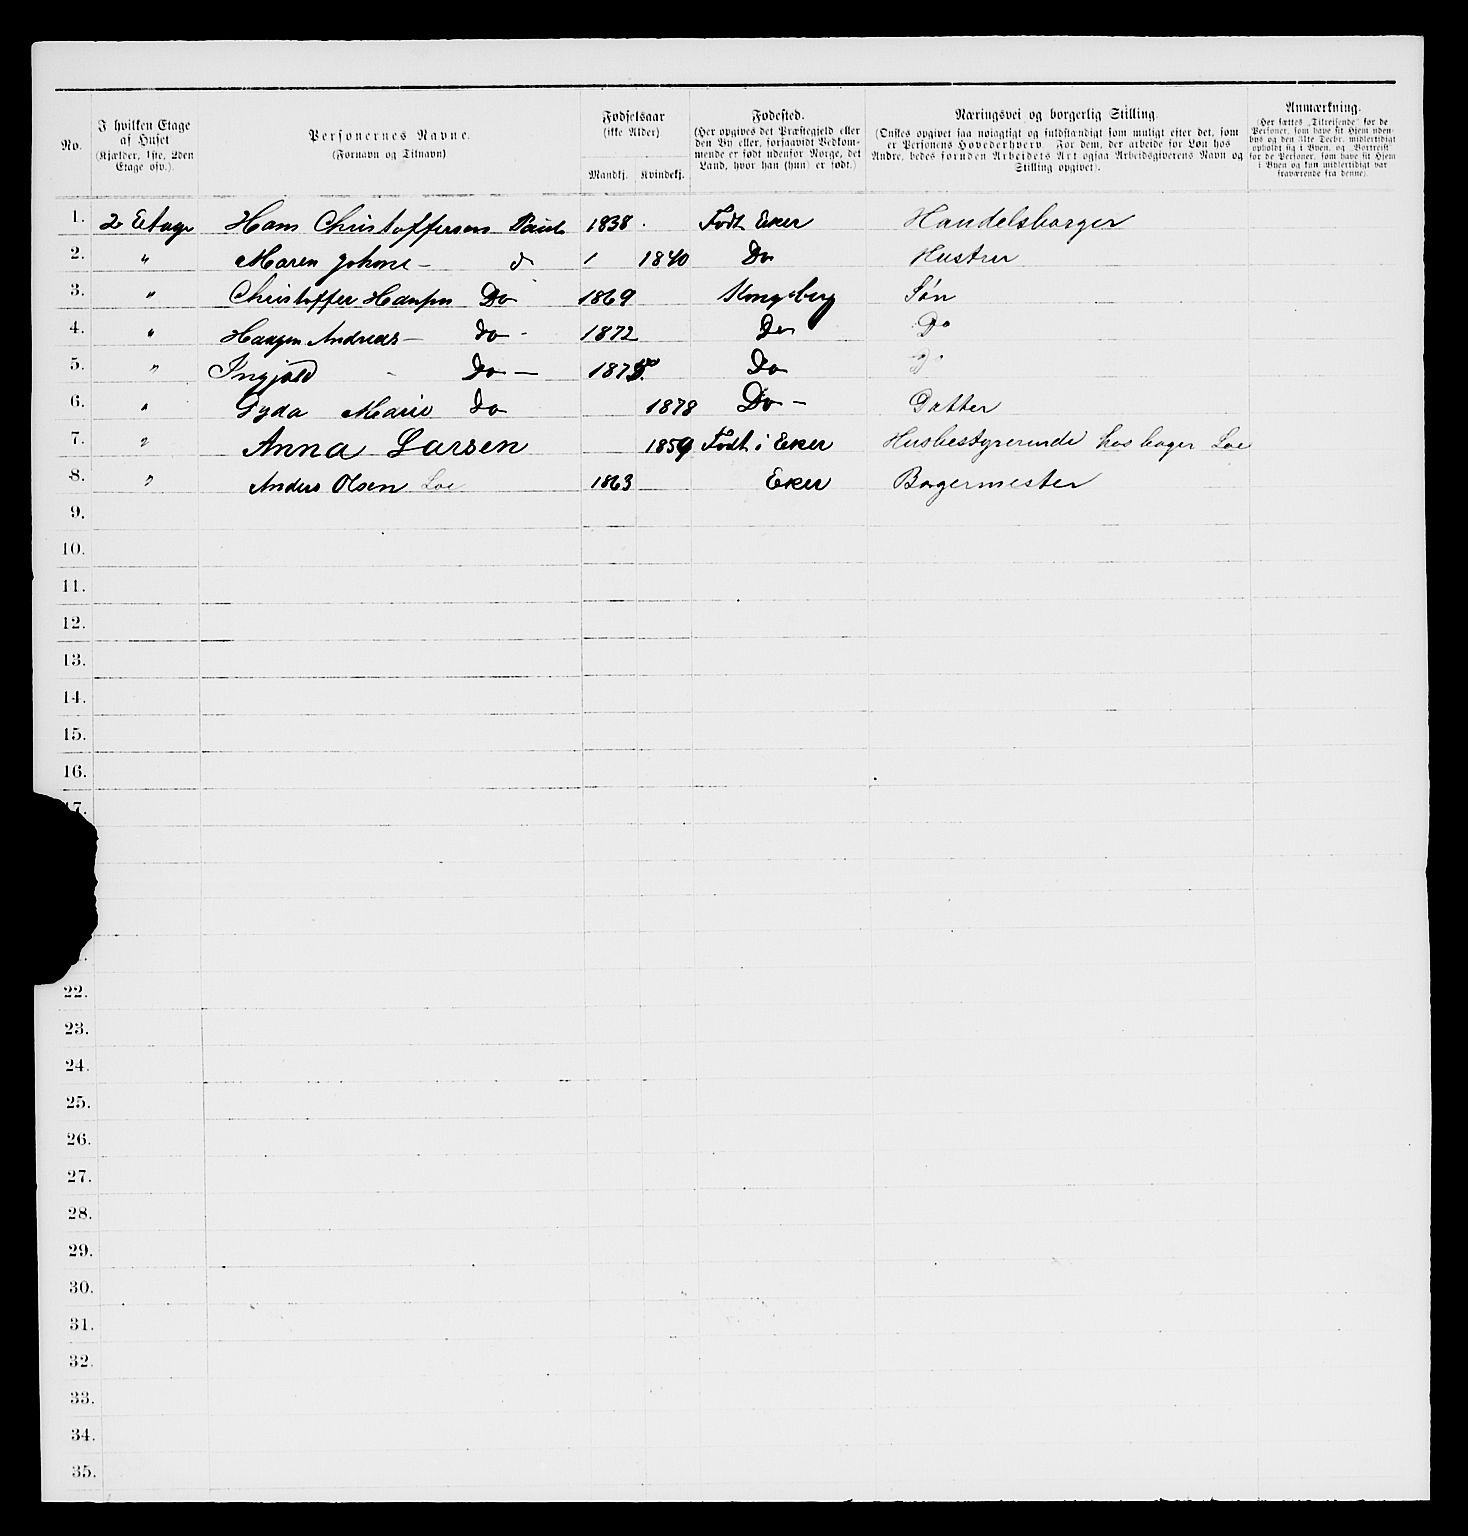 No.
I hvilken Etage af Huset (Kjælder, 1ste, 2den Etage osv.).
Personernes Navne. (Fornavn og Tilnavn)
Fødselsaar (ikke Alder)
Mandkj. Kvindekj.
Fødested. (Her opgives det Præstegjeld eller den By eller, forsaavidt Vedkommende er født udenfor Norge, det Land, hvor han (hun) er født.)
Næringsvei og borgerlig Stilling. (Ønskes opgivet saa nøiagtigt og fuldstændigt som muligt efter det, som er Personens Hovederhverv. For dem, der arbeide for Løn hos Andre, bedes foruden Arbeidets Art ogsaa Arbeidsgiverens Navn og Stilling opgivet).
Anmærkning. (Her sættes „Tilreisende" for de Personer, som have sit Hjem udenbys og den 31te Decbr. midlertidigt opholdt sig i Byen, og „Bortreist" for de Personer, som have sit Hjem i Byen og kun midlertidigt var fraværende fra denne).
1. 2 Etage Hans Christoffersen 1838 Født Eker Handelsborger
2. " Maren Johane - d 1 1840 Do Hustru
3. " Christoffer Hansen Do 1869 Kongsberg Søn
4. " Haagen Andreas - do - 1872 Do Do
5. " Ingjald - Do - 1875 Do D
6. " Gyda Marie do 1878 Do - Datter
7. " Anna Larsen 1859 Født i Eker Husbestyrerinde hos bager Loe
8. " Anders Olsen Loe 1863 Eker Bagermester
9.
10.
11.
12.
13.
14.
15.
16.
17.
22.
23.
24.
25.
26.
27.
28.
29.
30.
31.
32.
33.
34.
35.